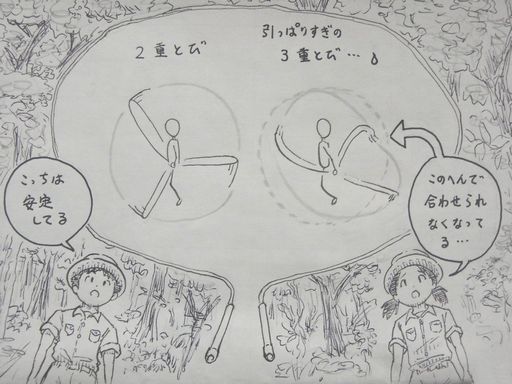 2重とび
引っぱりすぎの
3重とび…
こっちは
安定
してる
このへんで
合わせられ
なくなって
る…